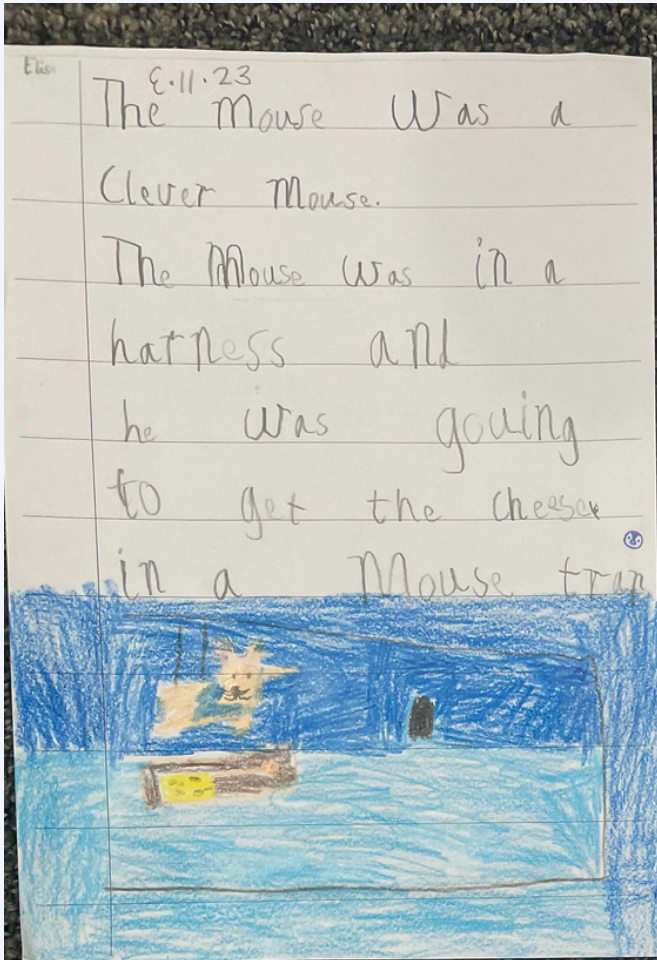 Elis
8.11.23
The Mouse Was a
Clever Mouse.
The Mouse was in a
harness and
he was gouing
to get the cheese
in a Mouse trap